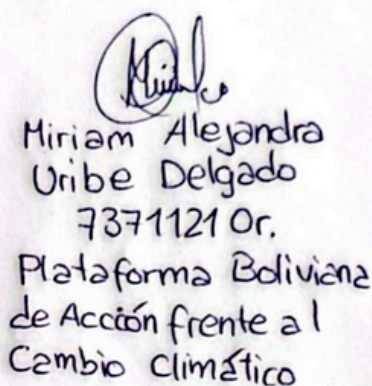 Miriam Alejandra
Uribe Delgado
7371121 Or.
Plataforma Boliviana
de Acción frente al
Cambio Climático